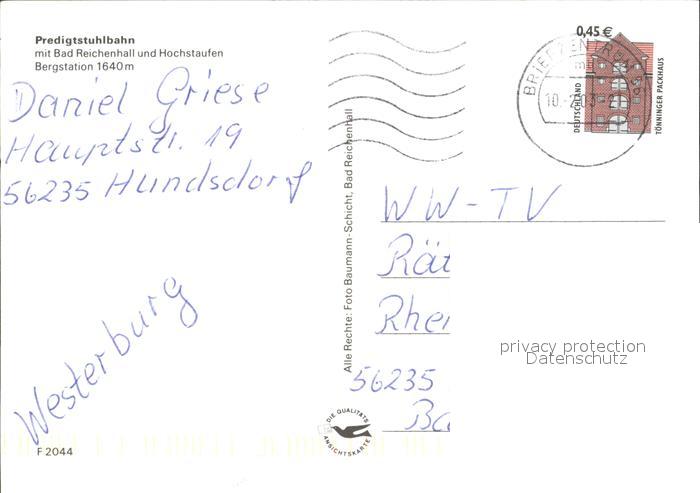 Predigtstuhlbahn
mit Bad Reichenhall und Hochstaufen
Bergstation 1640 m
Daniel Griese
Hauptstr. 19
56235 Hundsdorf
Westerburg
F 2044
Alle Rechte: Foto Baumann-Schicht, Bad Reichenhall
DIE QUALITÄTS
ANSICHTSKARTE
0,45 €
DEUTSCHLAND
TÖNNINGER PACKHAUS
BRIEFZENTRUM
WW-TV
Rät
Rhei
56235
Ba
privacy protection
Datenschutz